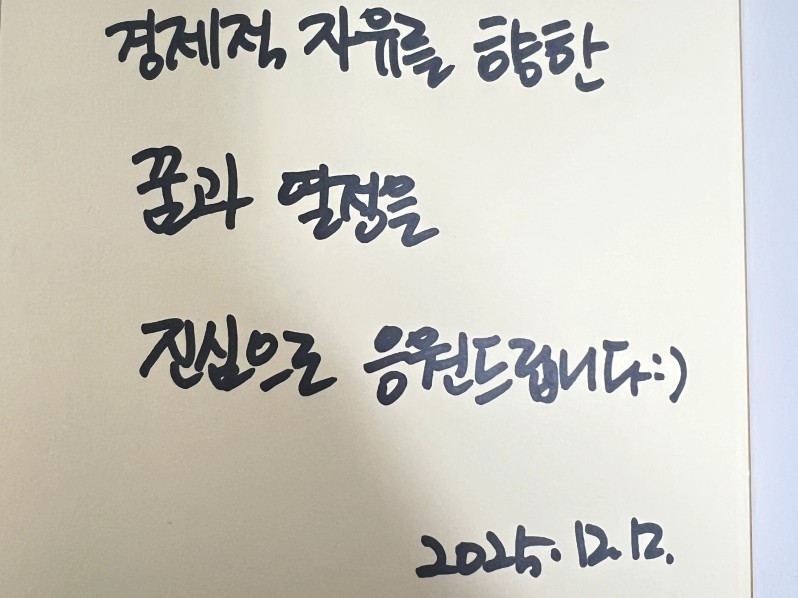 경제적 자유를 향한
꿈과 열정을
진심으로 응원드립니다:)
2025.12.12.